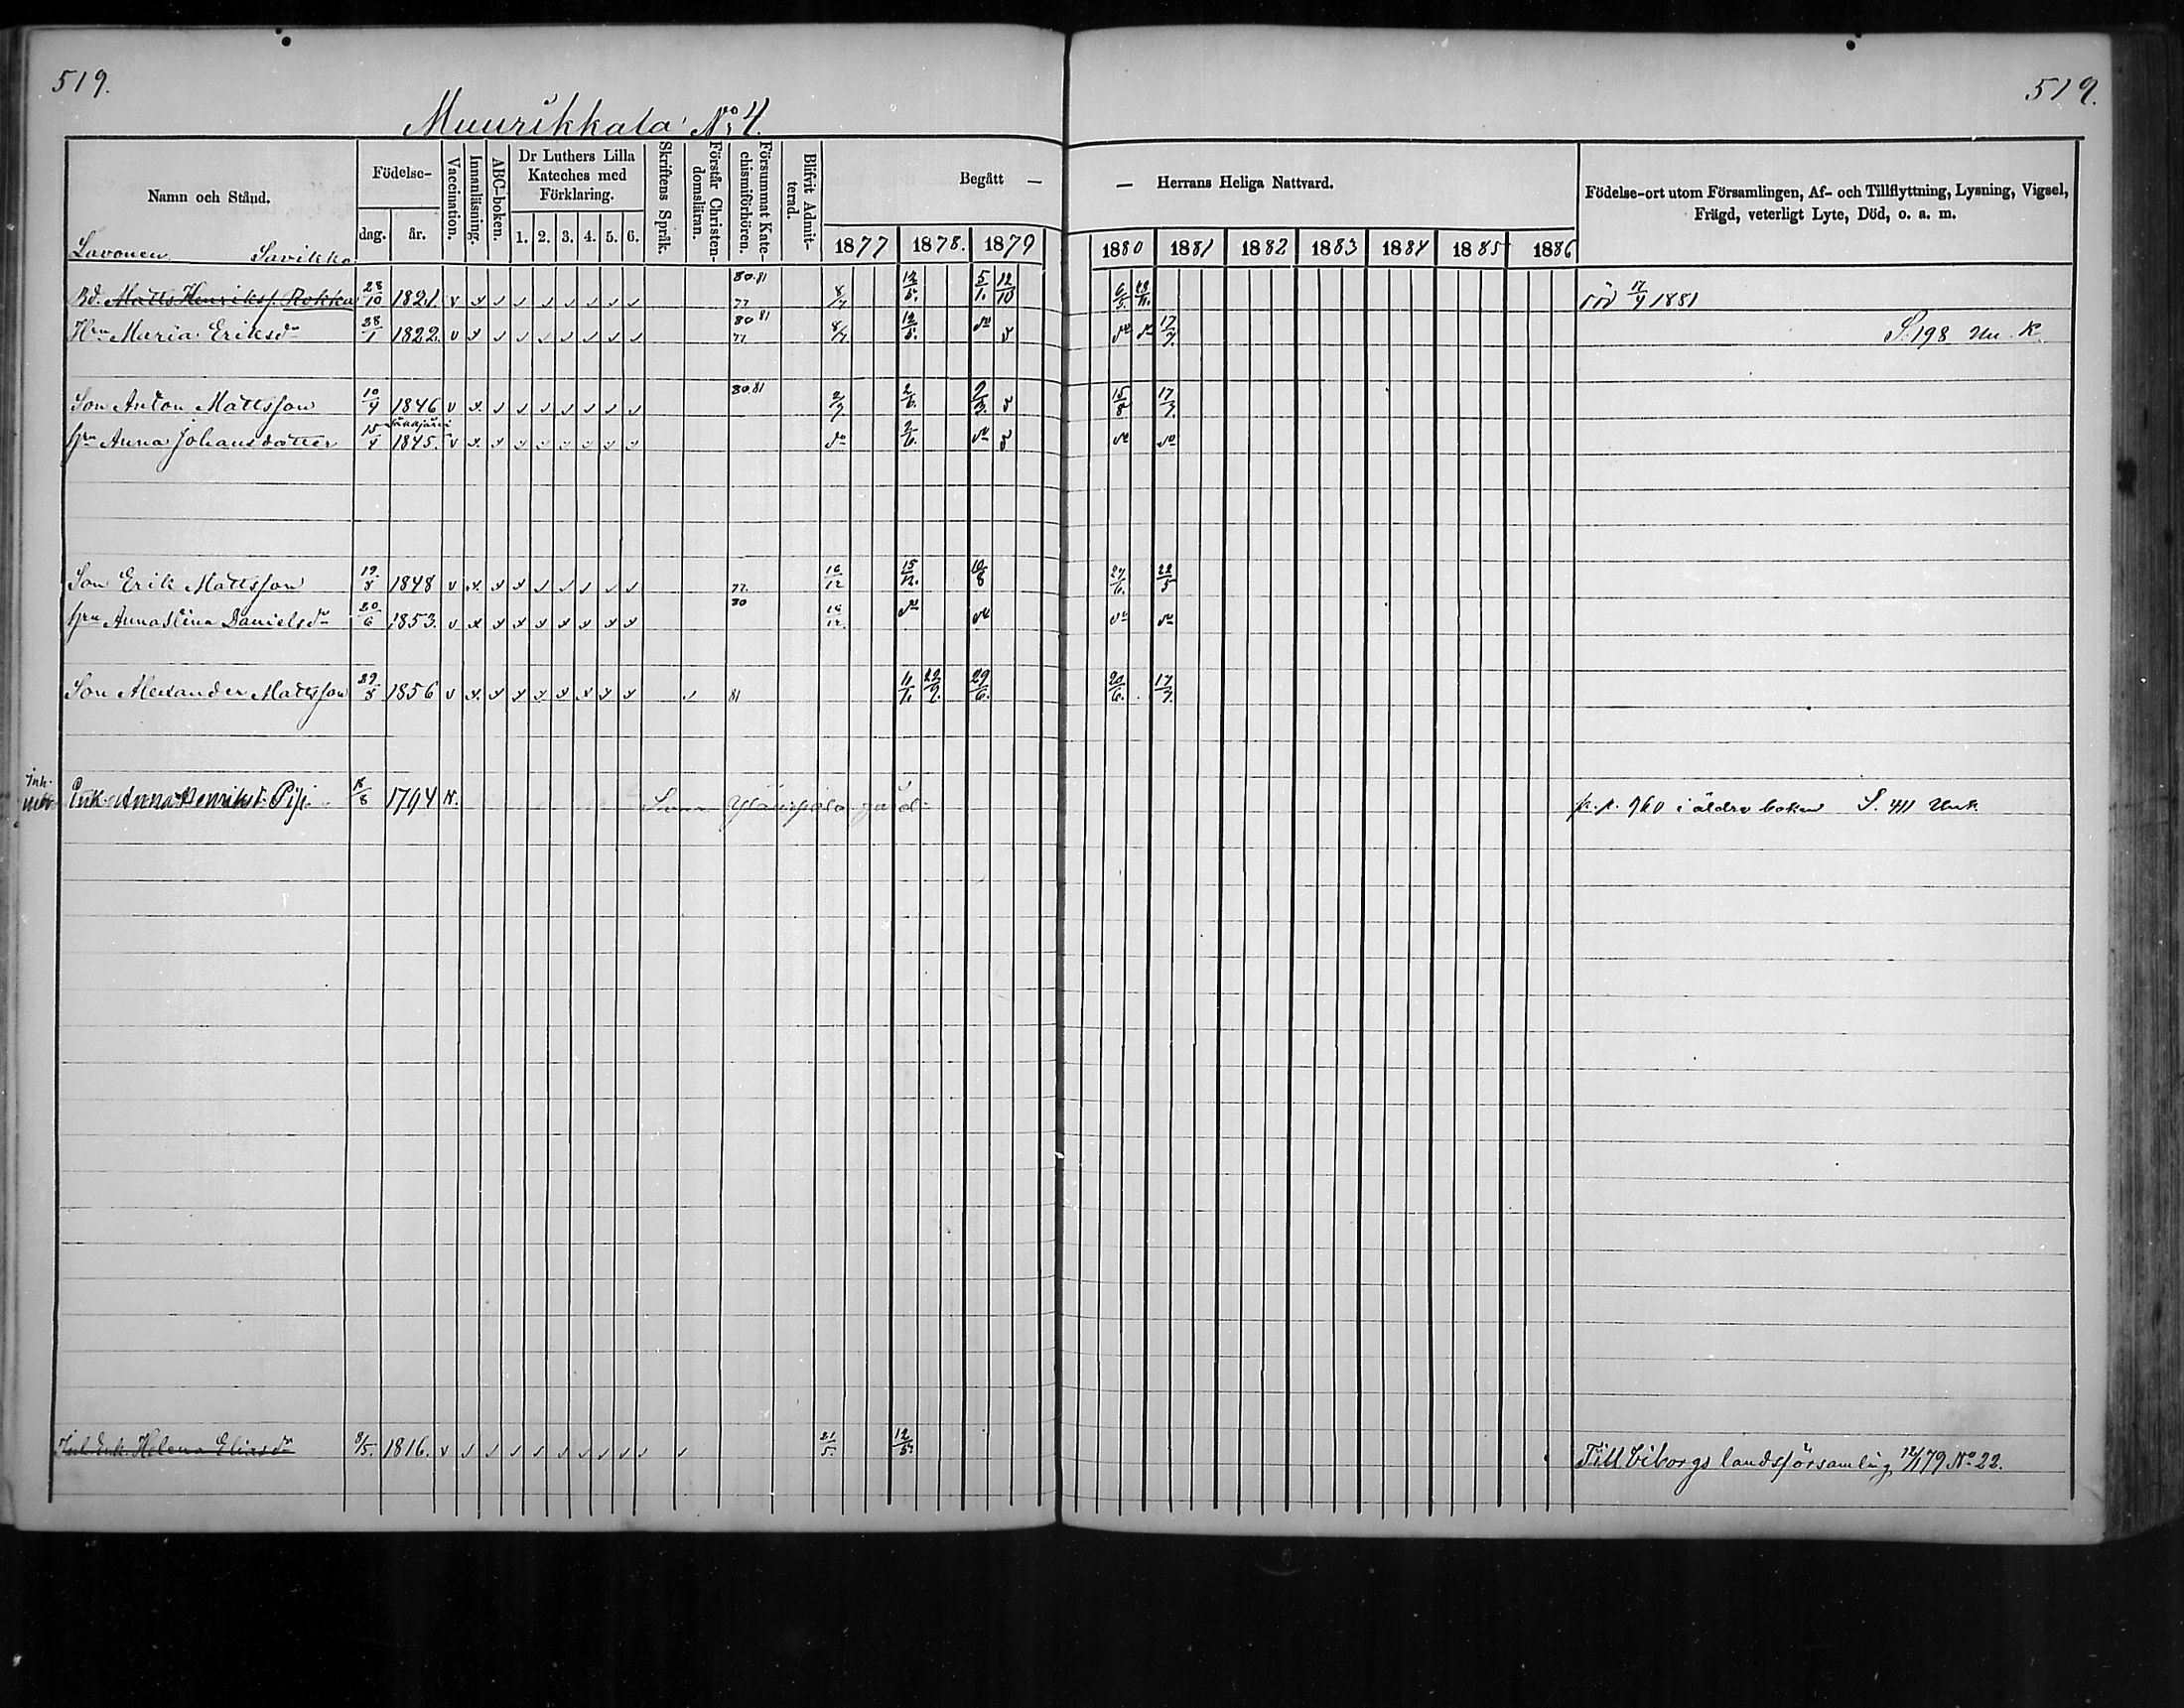 519. 519.
Muurikkala No 4.
Namn och Stånd. Födelse- dag. år. Vaccination. Innanläsning. ABC-boken. Dr Luthers Lilla Kateches med Förklaring. 1. 2. 3. 4. 5. 6. Skriftens Språk. Förstår Christendomsläran. Försummat Katechismiförhören. Blifvit Admitterad. Begått — — Herrans Heliga Nattvard. Födelse-ort utom Församlingen, Af- och Tillflyttning, Lysning, Vigsel, Frägd, veterligt Lyte, Död, o. a. m.
1877 1878. 1879 1880 1881 1882 1883 1884 1885 1886
Lavonen Savikko
Bd. Matts Henrikss. Rokka 28/10 1821. 80.81 77 8/7 12/5. 5/1. 12/10 6/5. 28/11. död 17/4 1881
Hru Maria Eriksdr 28/1 1822. 80 81 77 8/7 12/5. do do do 17/7. S. 198 K.
Son Anton Mattsson 10/4 1846 80.81 2/7 2/6. 2/3. 15/8 17/7.
Säkkjärvi
hru Anna Johansdotter 15/4 1845. do 2/6. do do do
Son Erik Mattsson 19/8 1848 77. 16/12 15/12. 10/8 27/6. 22/5
hru Anna Stina Danielsdr 20/6 1853. 80 16/12. do do do do
Son Alexander Mattsson 29/8 1856 81 6/1. 22/9. 29/6. 20/6. 17/7.
Inh.
Enk. Anna Henriksd. 18/8 1794 p. 960 i äldre boken S. 411
Inh. Enk. Helena Eliasdr 8/5. 1816. 21/5. 12/5. Till Viborgs landsförsamling 12/1 79 No 22.